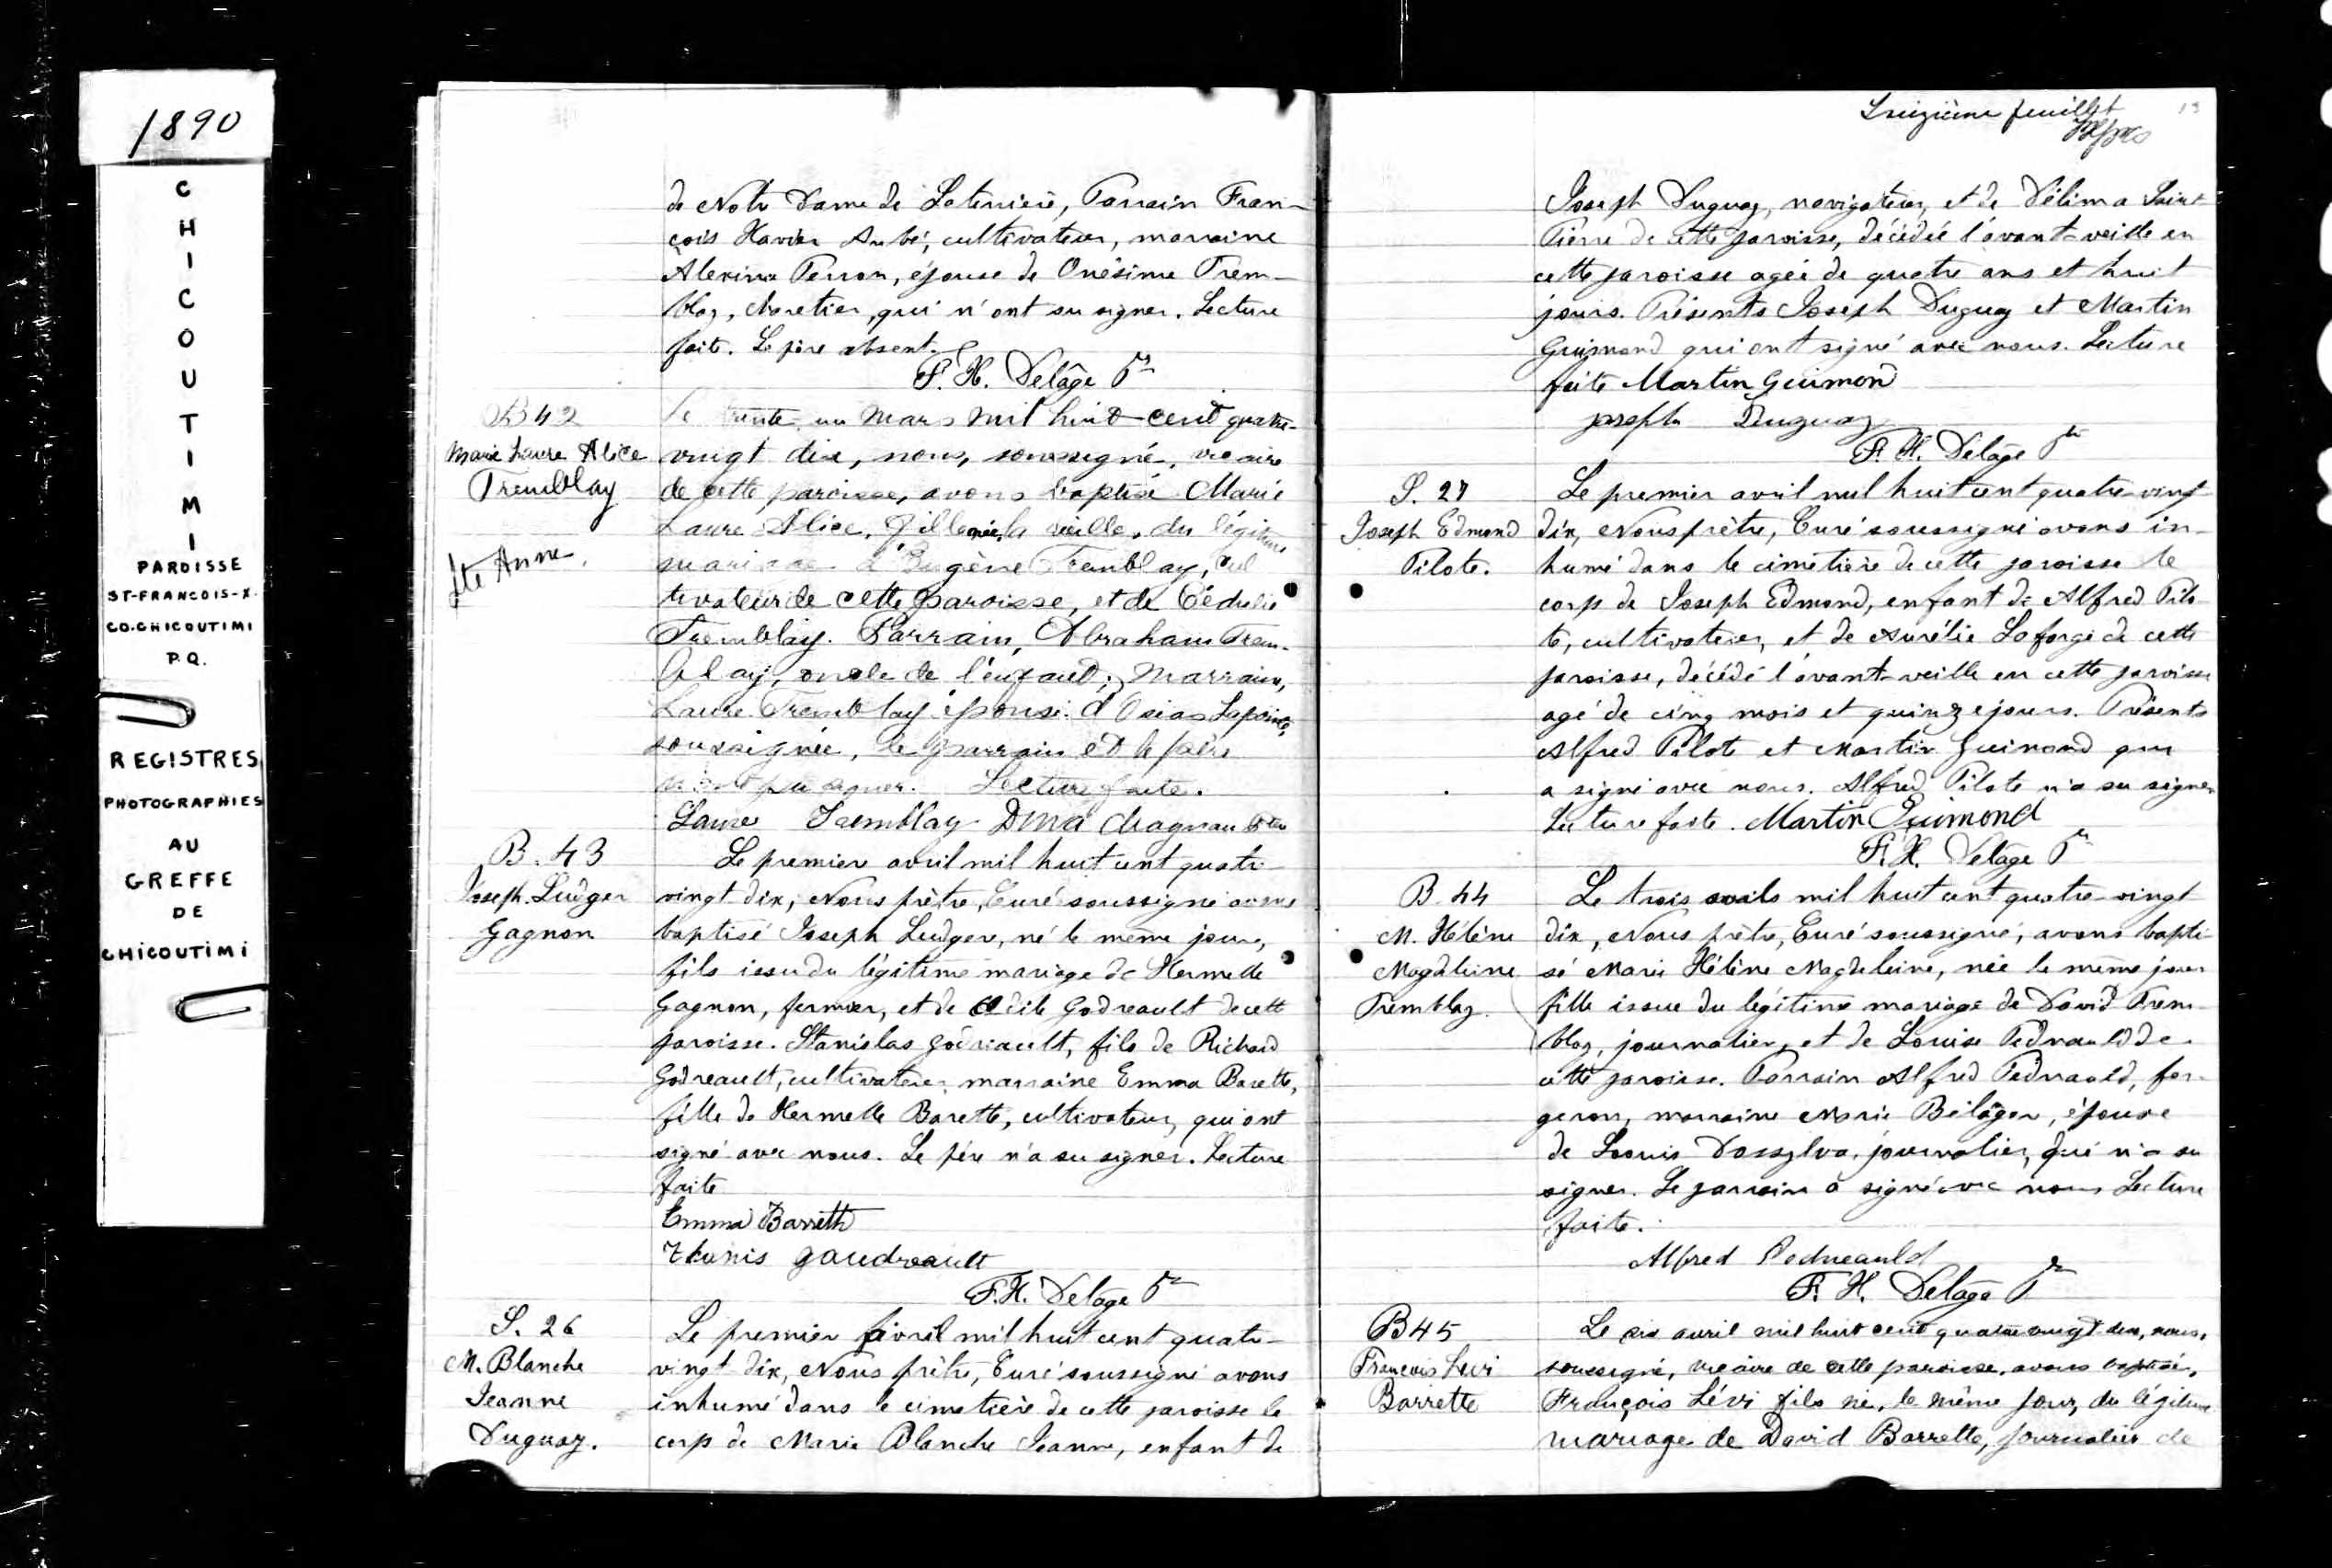 1890
CHICOUTIMI
PAROISSE
ST-FRANCOIS-X.
CO-CHICOUTIMI
P.Q.
REGISTRES
PHOTOGRAPHIES
AU
GREFFE
DE
CHICOUTIMI
de Notre Dame de Laterrière, Parrain Fran-
çois Xavier Aubé, cultivateur, marraine
Alexina Perron, épouse de Onésime Trem-
blay, charetier, qui n'ont su signer. Lecture
faite. Le père absent.
F. H. Delâge Ptre
B 42
Marie Laure Alice
Tremblay
Ste Anne.
Le trente un Mars mil huit cent quatre-
vingt dix, nous, soussigné, vicaire
de cette paroisse, avons baptisé Marie
Laure Alice, fille née, la veille, du légitime
mariage d'Eugène Tremblay, cul
tivateur de cette paroisse, et de Cédulie
Tremblay. Parrain, Abraham Trem-
blay, oncle de l'enfant; Marraine,
Laure Tremblay épouse d'Osias Lapointe,
soussignée, le parrain et le père
n'ont pu signer. Lecture faite.
Laure Tremblay Dma Chagnau Ptre
B. 43
Joseph Ludger
Gagnon
Le premier avril mil huit cent quatre-
vingt dix, Nous prêtre, Curé soussigné avons
baptisé Joseph Ludger, né le même jour,
fils issu du légitime mariage de Hermelle
Gagnon, fermier, et de Odile Godreault de cette
paroisse. Stanislas Godreault, fils de Richard
Godreault, cultivateur, marraine Emma Barette,
fille de Hermelle Barette, cultivateur, qui ont
signé avec nous. Le père n'a su signer. Lecture
faite
Emma Barrette
Thanis gaudreault
F.H. Delâge Ptre
S. 26
M. Blanche
Jeanne
Duguay.
Le premier avril mil huit cent quatre-
vingt dix, Nous prêtre, Curé soussigné avons
inhumé dans le cimetière de cette paroisse le
corps de Marie Blanche Jeanne, enfant de
Treizième feuillet
13
Joseph Duguay, navigateur, et de Délima Saint-
Pierre de cette paroisse, décédée l'avant-veille en
cette paroisse agée de quatre ans et huit
jours. Présents Joseph Duguay et Martin
Guimond qui ont signé avec nous. Lecture
faite Martin Guimond
joseph Duguay
F. H. Delâge Ptre
S. 27
Joseph Edmond
Pilote.
Le premier avril mil huit cent quatre-vingt
dix, Nous prêtre, Curé soussigné avons in-
humé dans le cimetière de cette paroisse le
corps de Joseph Edmond, enfant de Alfred Pilo
te, cultivateur, et de Aurélie Laforge de cette
paroisse, décédé l'avant-veille en cette paroisse
agé de cinq mois et quinze jours. Présents
Alfred Pilote et Martin Guimond qui
a signé avec nous. Alfred Pilote n'a su signer
Lecture faite. Martin Guimond
F. H. Delâge Ptre
B. 44
M. Hélène
Magdeleine
Tremblay.
Le trois avril mil huit cent quatre-vingt
dix, Nous prêtre, Curé soussigné, avons bapti-
sé Marie Hélène Magdeleine, née le même jour
fille issue du légitime mariage de David Trem-
blay, journalier, et de Louise Pednauld de
cette paroisse. Parrain Alfred Pednauld, for-
geron, marraine Marie Bélanger, épouse
de Louis Dassylva, journalier, qui n'a su
signer. Le parrain a signé avec nous Lecture
faite.
Alfred Pedneauld
F. H. Delâge Ptre
B 45
François Lévi
Barrette
Le six avril mil huit cent quatre vingt dix, nous,
soussigné, vicaire de cette paroisse, avons baptisé,
François Lévi fils né, le même jour, du légitime
mariage de David Barrette, journalier de